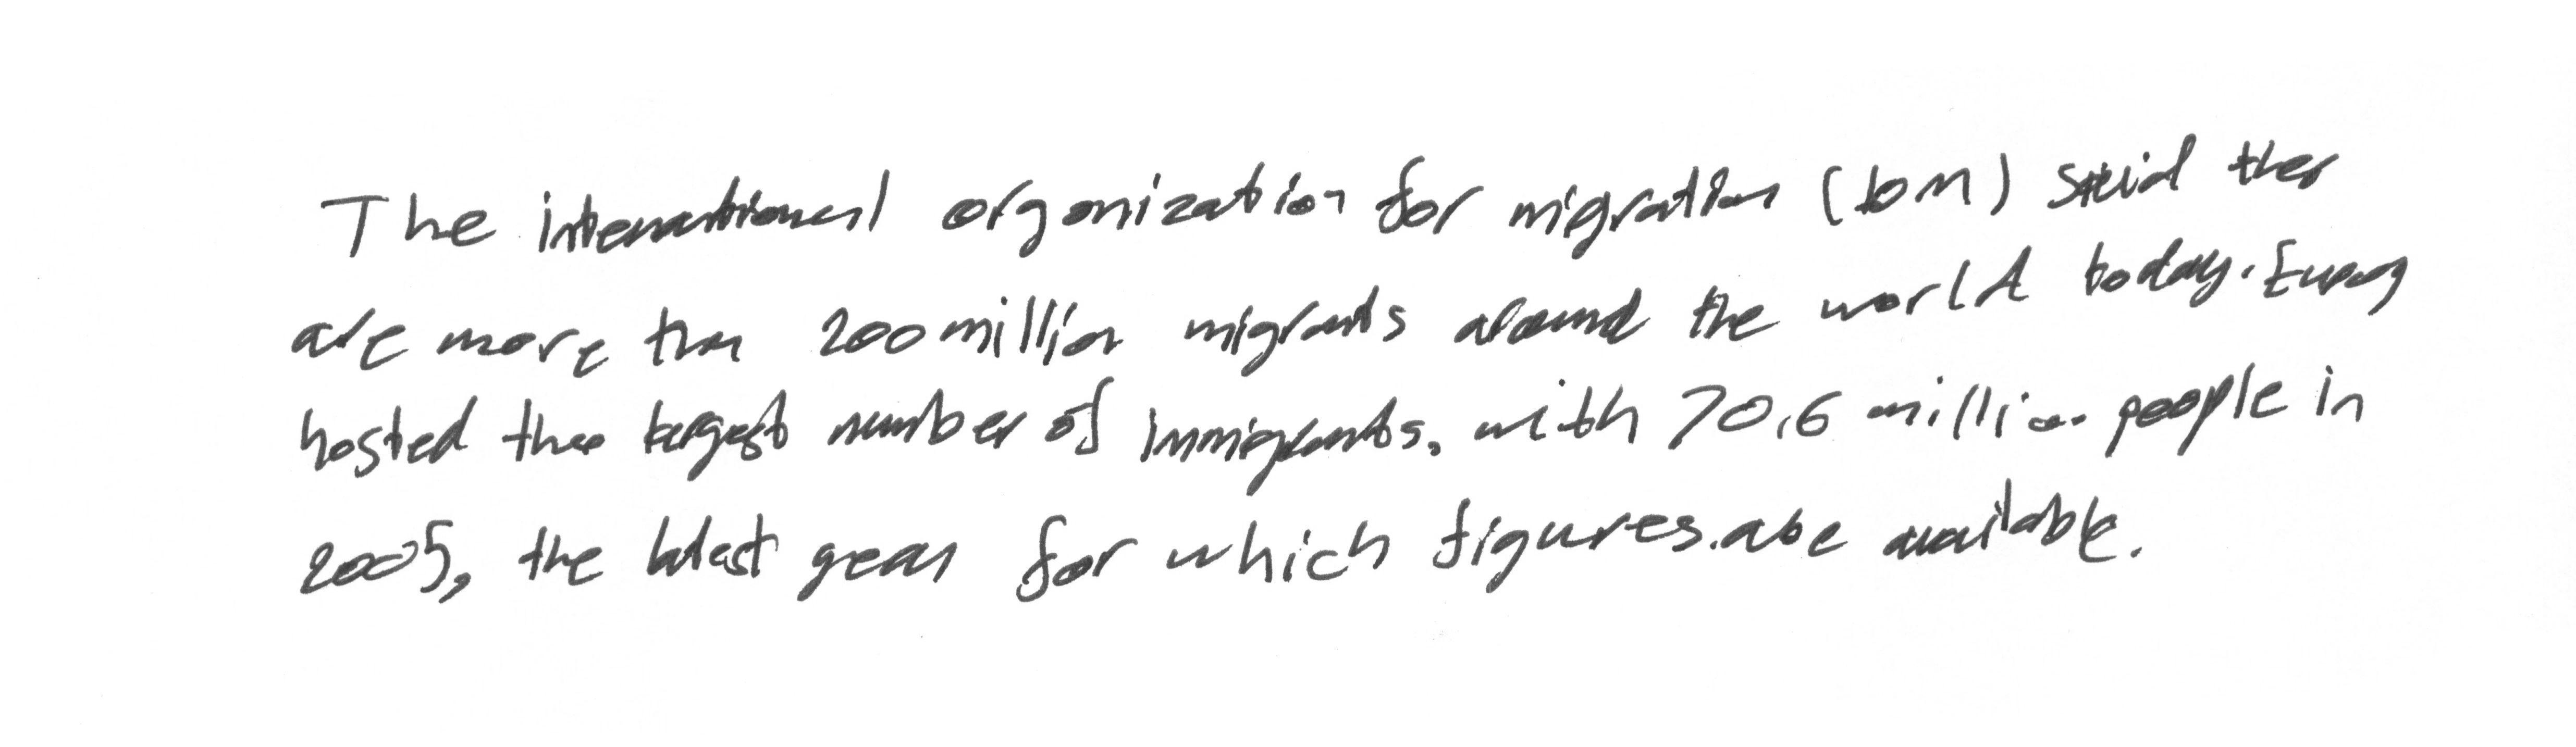 The international organization for migration (IOM) said ther
are more than 200 million migrants around the world today. Europ
hosted the largest number of immigrants, with 70.6 million people in
2005, the latest year for which figures are available.